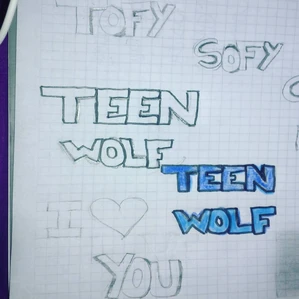 TOFY
SOFY
TEEN
WOLF
TEEN
WOLF
I
YOU